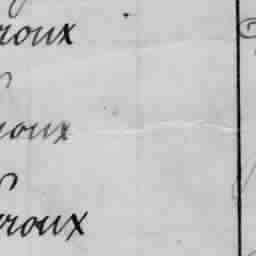 roux
roux
roux